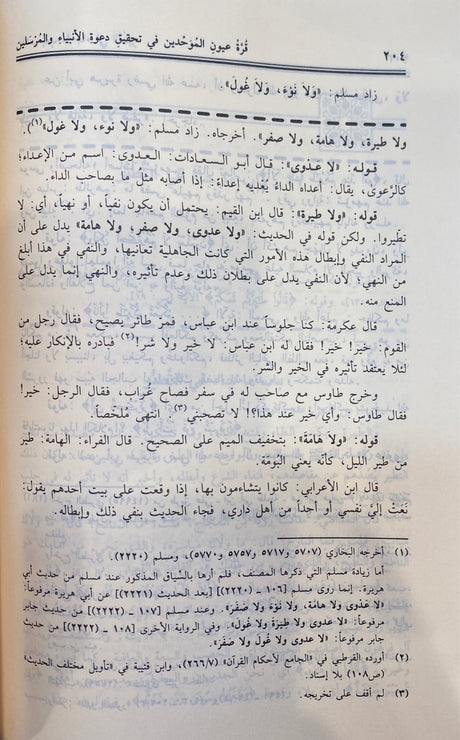 ٢٠٤ قُرَّةُ عيونِ المُوَحِّدين في تحقيقِ دعوةِ الأنبياءِ والمُرْسَلين
زاد مسلم: «وَلاَ نَوْءَ، وَلاَ غُولَ».
ولا طيرة، ولا هامة، ولا صفر». أخرجاه. زاد مسلم: «ولا نوء، ولا غول»(١).
قوله: «لا عَدْوَى»: قال أبو السعادات: العدوى: اسم من الإعداء؛
كالرَّعْوَى، يقال: أعداه الداءُ يُعْديه إعداءً: إذا أصابه مثل ما بصاحب الداء.
قوله: «ولا طيرة»: قال ابن القيم: يحتمل أن يكون نفياً، أو نهياً، أي: لا
تطَّيروا. ولكن قوله في الحديث: «ولا عدوى، ولا صفر، ولا هامة» يدل على أن
المراد النفي وإبطال هذه الأمور التي كانت الجاهلية تعانيها، والنفي في هذا أبلغ
من النهي؛ لأن النفي يدل على بطلان ذلك وعدم تأثيره، والنهي إنما يدل على
المنع منه.
قال عكرمة: كنا جلوساً عند ابن عباس، فمرَّ طائر يصيح، فقال رجل من
القوم: خير! خير! فقال له ابن عباس: لا خير ولا شر!(٢) فبادره بالإنكار عليه؛
لئلا يعتقد تأثيره في الخير والشر.
وخرج طاوس مع صاحب له في سفر فصاح غُراب، فقال الرجل: خير!
فقال طاوس: وأي خير عند هذا؟! لا تصحبني(٣). انتهى مُلخصاً.
قوله: «ولا هَامَةَ»: بتخفيف الميم على الصحيح. قال الفراء: الهامة: طير
من طير الليل، كأنه يعني البُومَة.
قال ابن الأعرابي: كانوا يتشاءمون بها، إذا وقعت على بيت أحدهم يقول:
نَعَتْ إليَّ نفسي أو أحداً من أهل داري، فجاء الحديث بنفي ذلك وإبطاله.
(١) أخرجه البخاري (٥٧٠٧ و٥٧١٧ و٥٧٥٧ و٥٧٧٠)، ومسلم (٢٢٢٠).
أما زيادة مسلم التي ذكرها المصنف، فلم أرها بالسِّياق المذكور عند مسلم من حديث أبي
هريرة. إنما روى مسلم [١٠٦ - (٢٢٢٠)] [بعد الحديث (٢٢٢١)] عن أبي هريرة مرفوعاً:
«لا عَدْوى ولا هَامَةَ، ولا نَوْءَ ولا صَفَرَ». وعند مسلم [١٠٧ - (٢٢٢٢)] من حديث جابر
مرفوعاً: «لا عدوى ولا طِيَرَةَ ولا غُولَ». وفي الرواية الأخرى [١٠٨ - (٢٢٢٢)] من حديث
جابر مرفوعاً: «لا عدوى ولا غُولَ ولا صَفَرَ».
(٢) أورده القرطبي في «الجامع لأحكام القرآن» (٢٦٦/٧)، وابن قتيبة في «تأويل مختلف الحديث»
(ص١٠٨) بلا إسناد.
(٣) لم أقف على تخريجه.